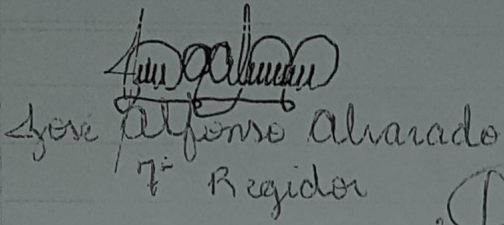 Jose Alfonso Alvarado
7º Regidor